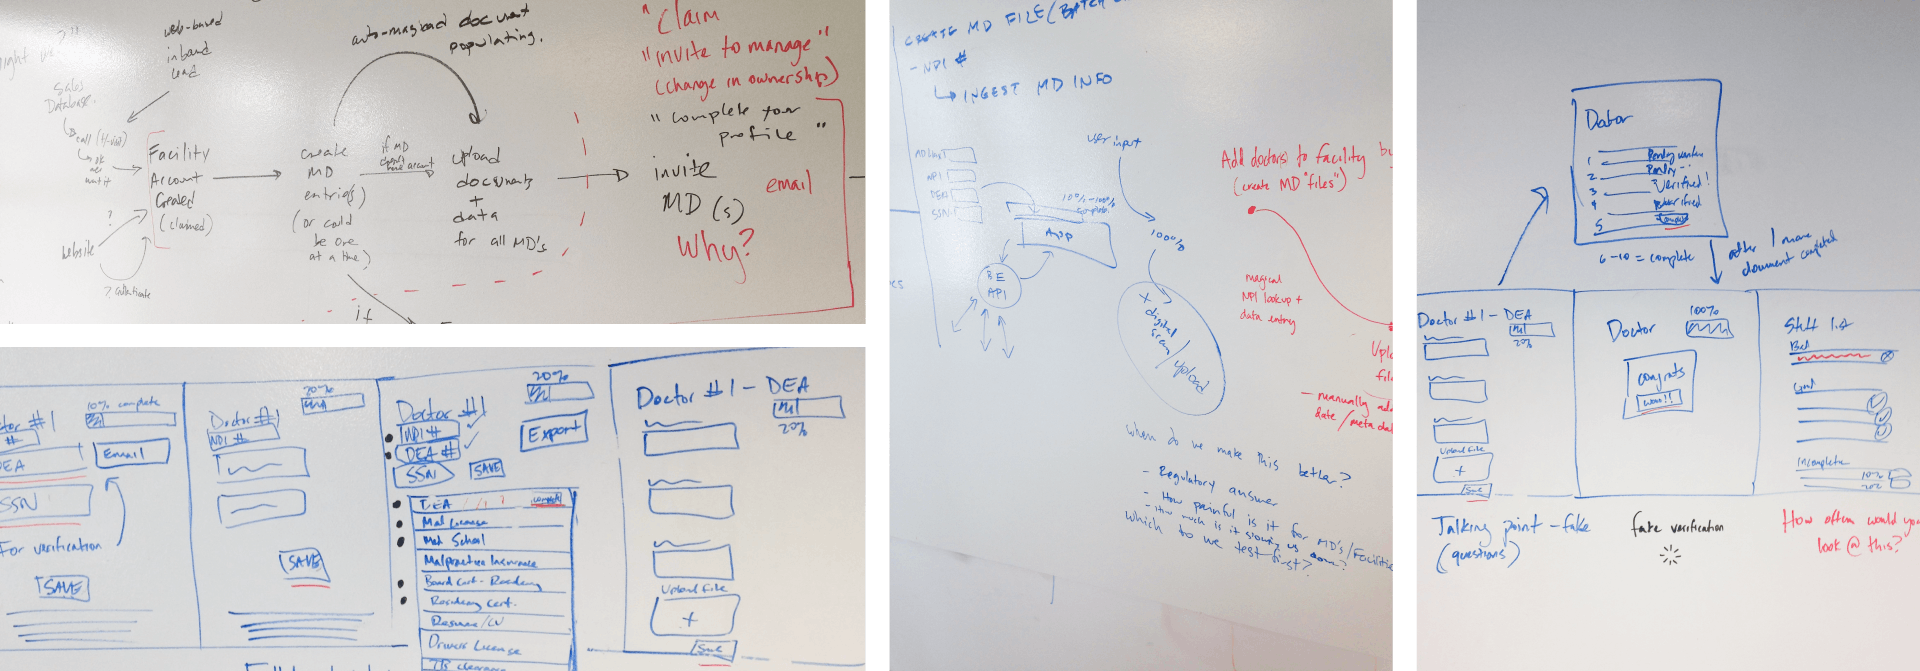 might
web-based
inbound
lead
Sales
Database
call
Facility
Account
Created
(claimed)
website
?
auto-magical document
populating.
create
MD
entri(es)
(or could
be one
at a time)
if MD
doesn't
have account
upload
documents
+
data
for all MD's
if
"Claim
"invite to manage"
(change in ownership)
"complete your
profile"
invite
MD(s)
email
Why?
Doctor #1
10% complete
#
DEA
Email
SSN
For verification
SAVE
20%
Doctor #1
NPI #
SAVE
20%
Doctor #1
NPI #
DEA #
SSN
SAVE
Export
DEA
Mal License
Med School
Malpractice Insurance
Board Cert - Residency
Residency Cert.
Resume/CV
Drivers License
TB clearance
Doctor #1 - DEA
20%
Upload File
+
Save
CREATE MD FILE (BATCH
- NPI #
INGEST MD INFO
user input
NPI
DEA
SSN
100%-100%
complete
App
BE
API
100%
X
digital
scan/upload
Add doctors to facility
(create MD "files")
magical
NPI lookup +
data entry
- manually add
date/meta data
when do we make this better?
- Regulatory answer
- How painful is it for MD's/Facilities
- How much is it slowing us down?
which to we test first?
Doctor
1
2
3
4
5
Verified!
6-10 = complete
after 1 more
document completed
Doctor #1 - DEA
20%
Upload File
+
Save
Doctor
100%
Congrats
woo!!
Staff list
Bad
Good
Incomplete
10%
20%
Talking point - fake
(questions)
fake verification
How often would you
look @ this?